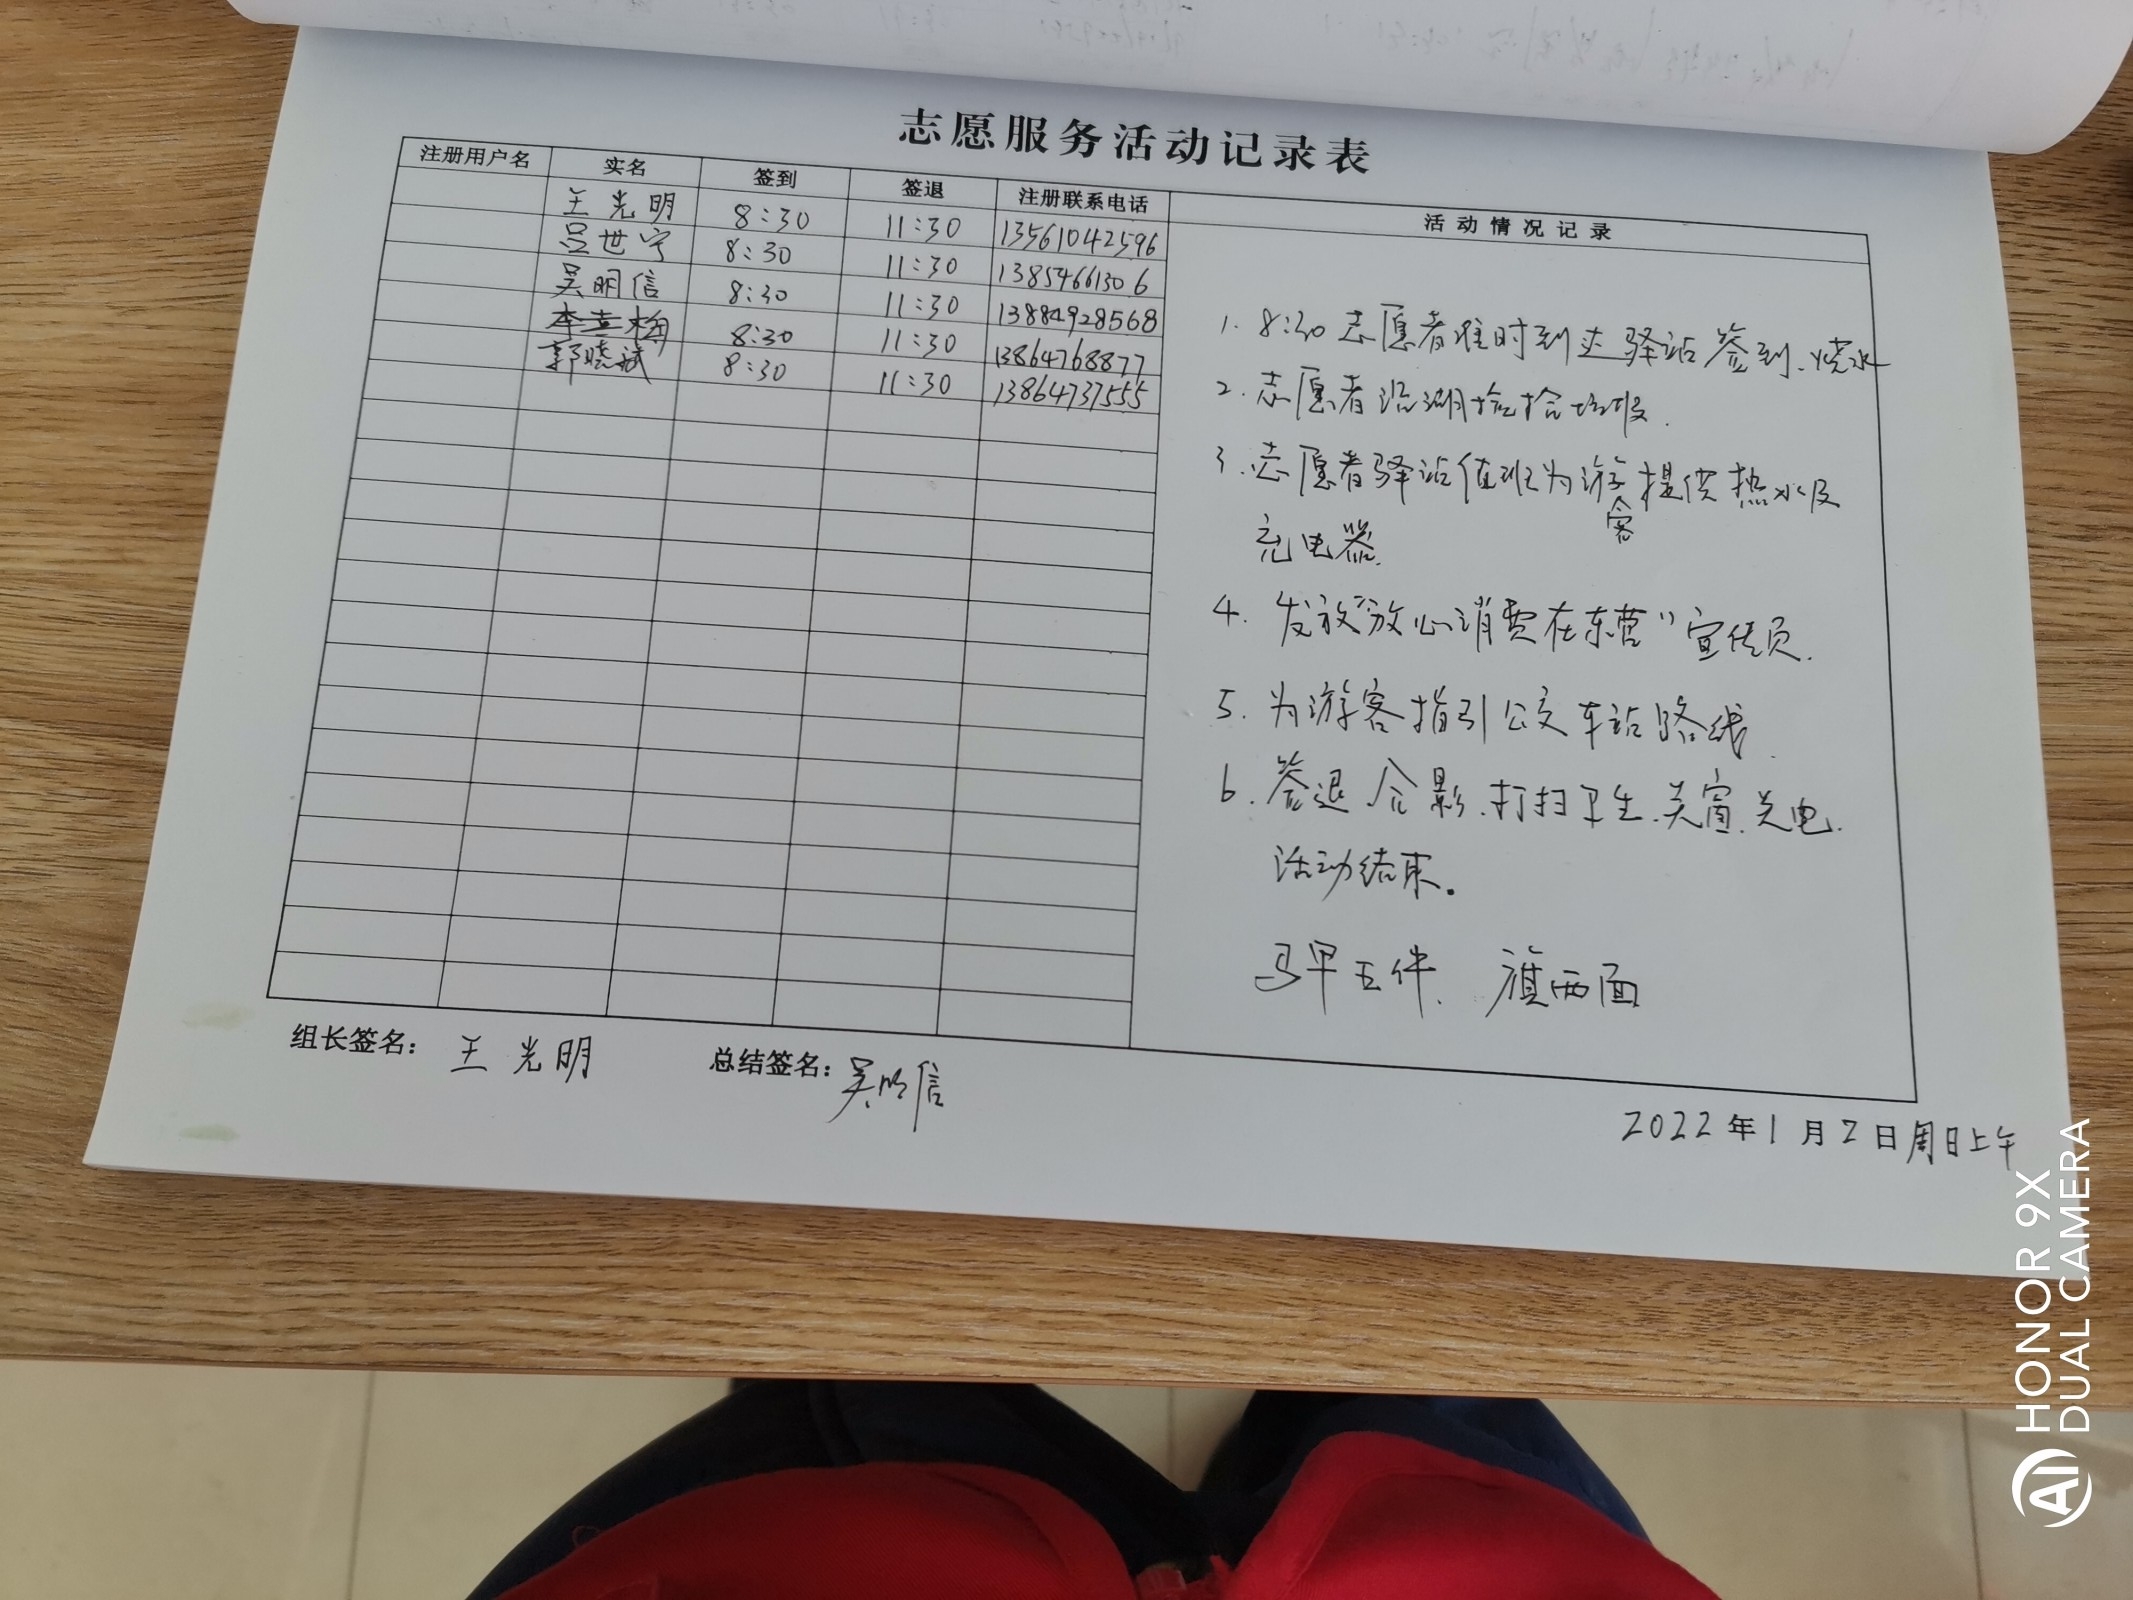 志愿服务活动记录表
注册用户名 实名 签到 签退 注册联系电话 活动情况记录
王光明 8:30 11:30 13561042596
吕世宁 8:30 11:30 13854661306
吴明信 8:30 11:30 13884928568
8:30 11:30 13864768877
郭晓斌 8:30 11:30 13864737555
1. 8:30志愿者准时到达驿站签到、烧水
2. 志愿者沿湖捡拾垃圾.
3. 志愿者驿站值班为游客提供热水及
充电器.
4. 发放“放心消费在东营”宣传页.
5. 为游客指引公交车站路线.
6. 签退合影、打扫卫生、关窗、关电.
活动结束。
马甲五件、旗两面
组长签名: 王光明 总结签名: 吴明信
2022年1月2日周日上午
HONOR 9X
AI DUAL CAMERA